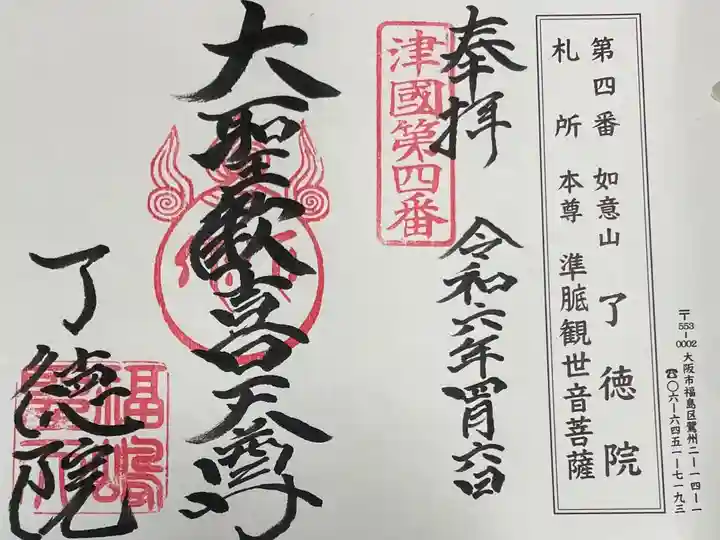 第四番 如意山 了徳院
札所本尊 準胝観世音菩薩
〒553-0002 大阪市福島区鷺州二ー一四ー一
☎〇六ー六四五一ー七一九三
奉拝
津國第四番
令和六年四月六日
大聖歓喜天尊
了徳院
福嶋